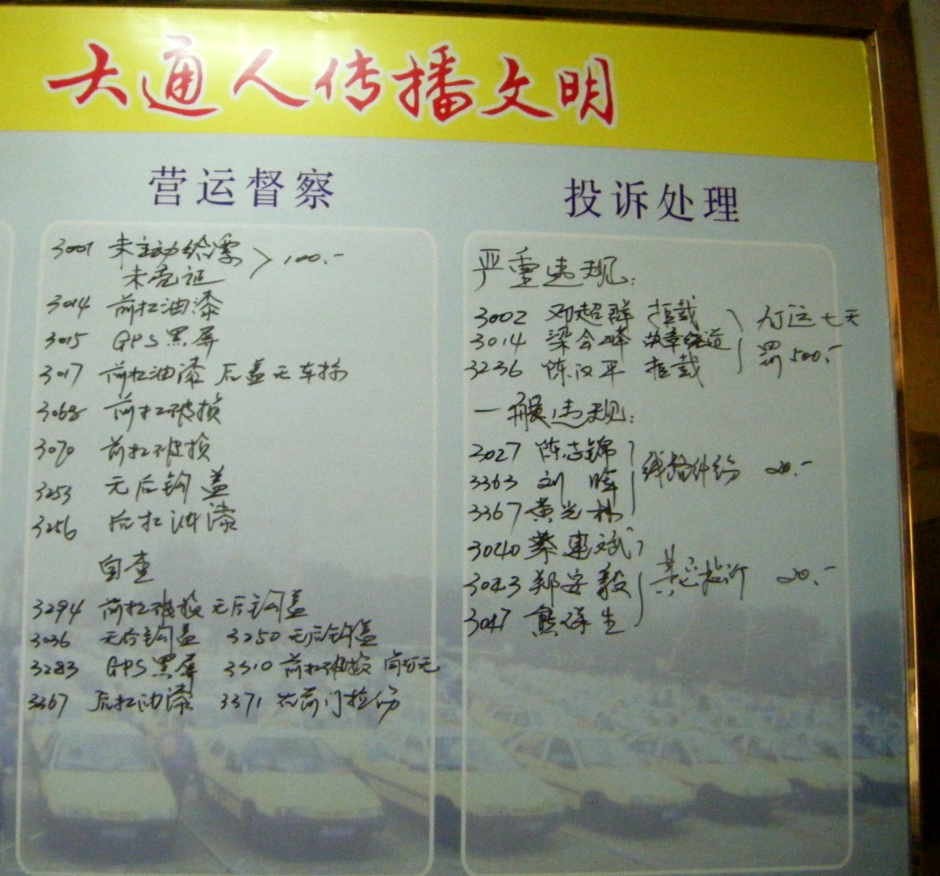 大通人传播文明
营运督察
3001 未主动给票 > 100.-
未亮证
3014 前扛油漆
3015 GPS黑屏
3017 前扛油漆 后盖无车标
3068 前扛破损
3070 前扛破损
3253 无后钩盖
3256 后扛油漆
自查
3294 前扛破损 无后钩盖
3036 无后钩盖 3250 无后钩盖
3283 GPS黑屏 3310 前扛破损
3367 后扛油漆 3371 右前门拉伤
投诉处理
严重违规:
3002 邓超群 拒载 停运七天
3014 梁会峰 故意绕道 罚500.-
3236 陈汉平 拒载
一般违规:
3027 陈志锦
3363 刘 晖 线路纠纷 20.-
3367 黄光林
3040 蔡惠斌
3043 郑安毅 其它投诉 20.-
3047 熊泽生